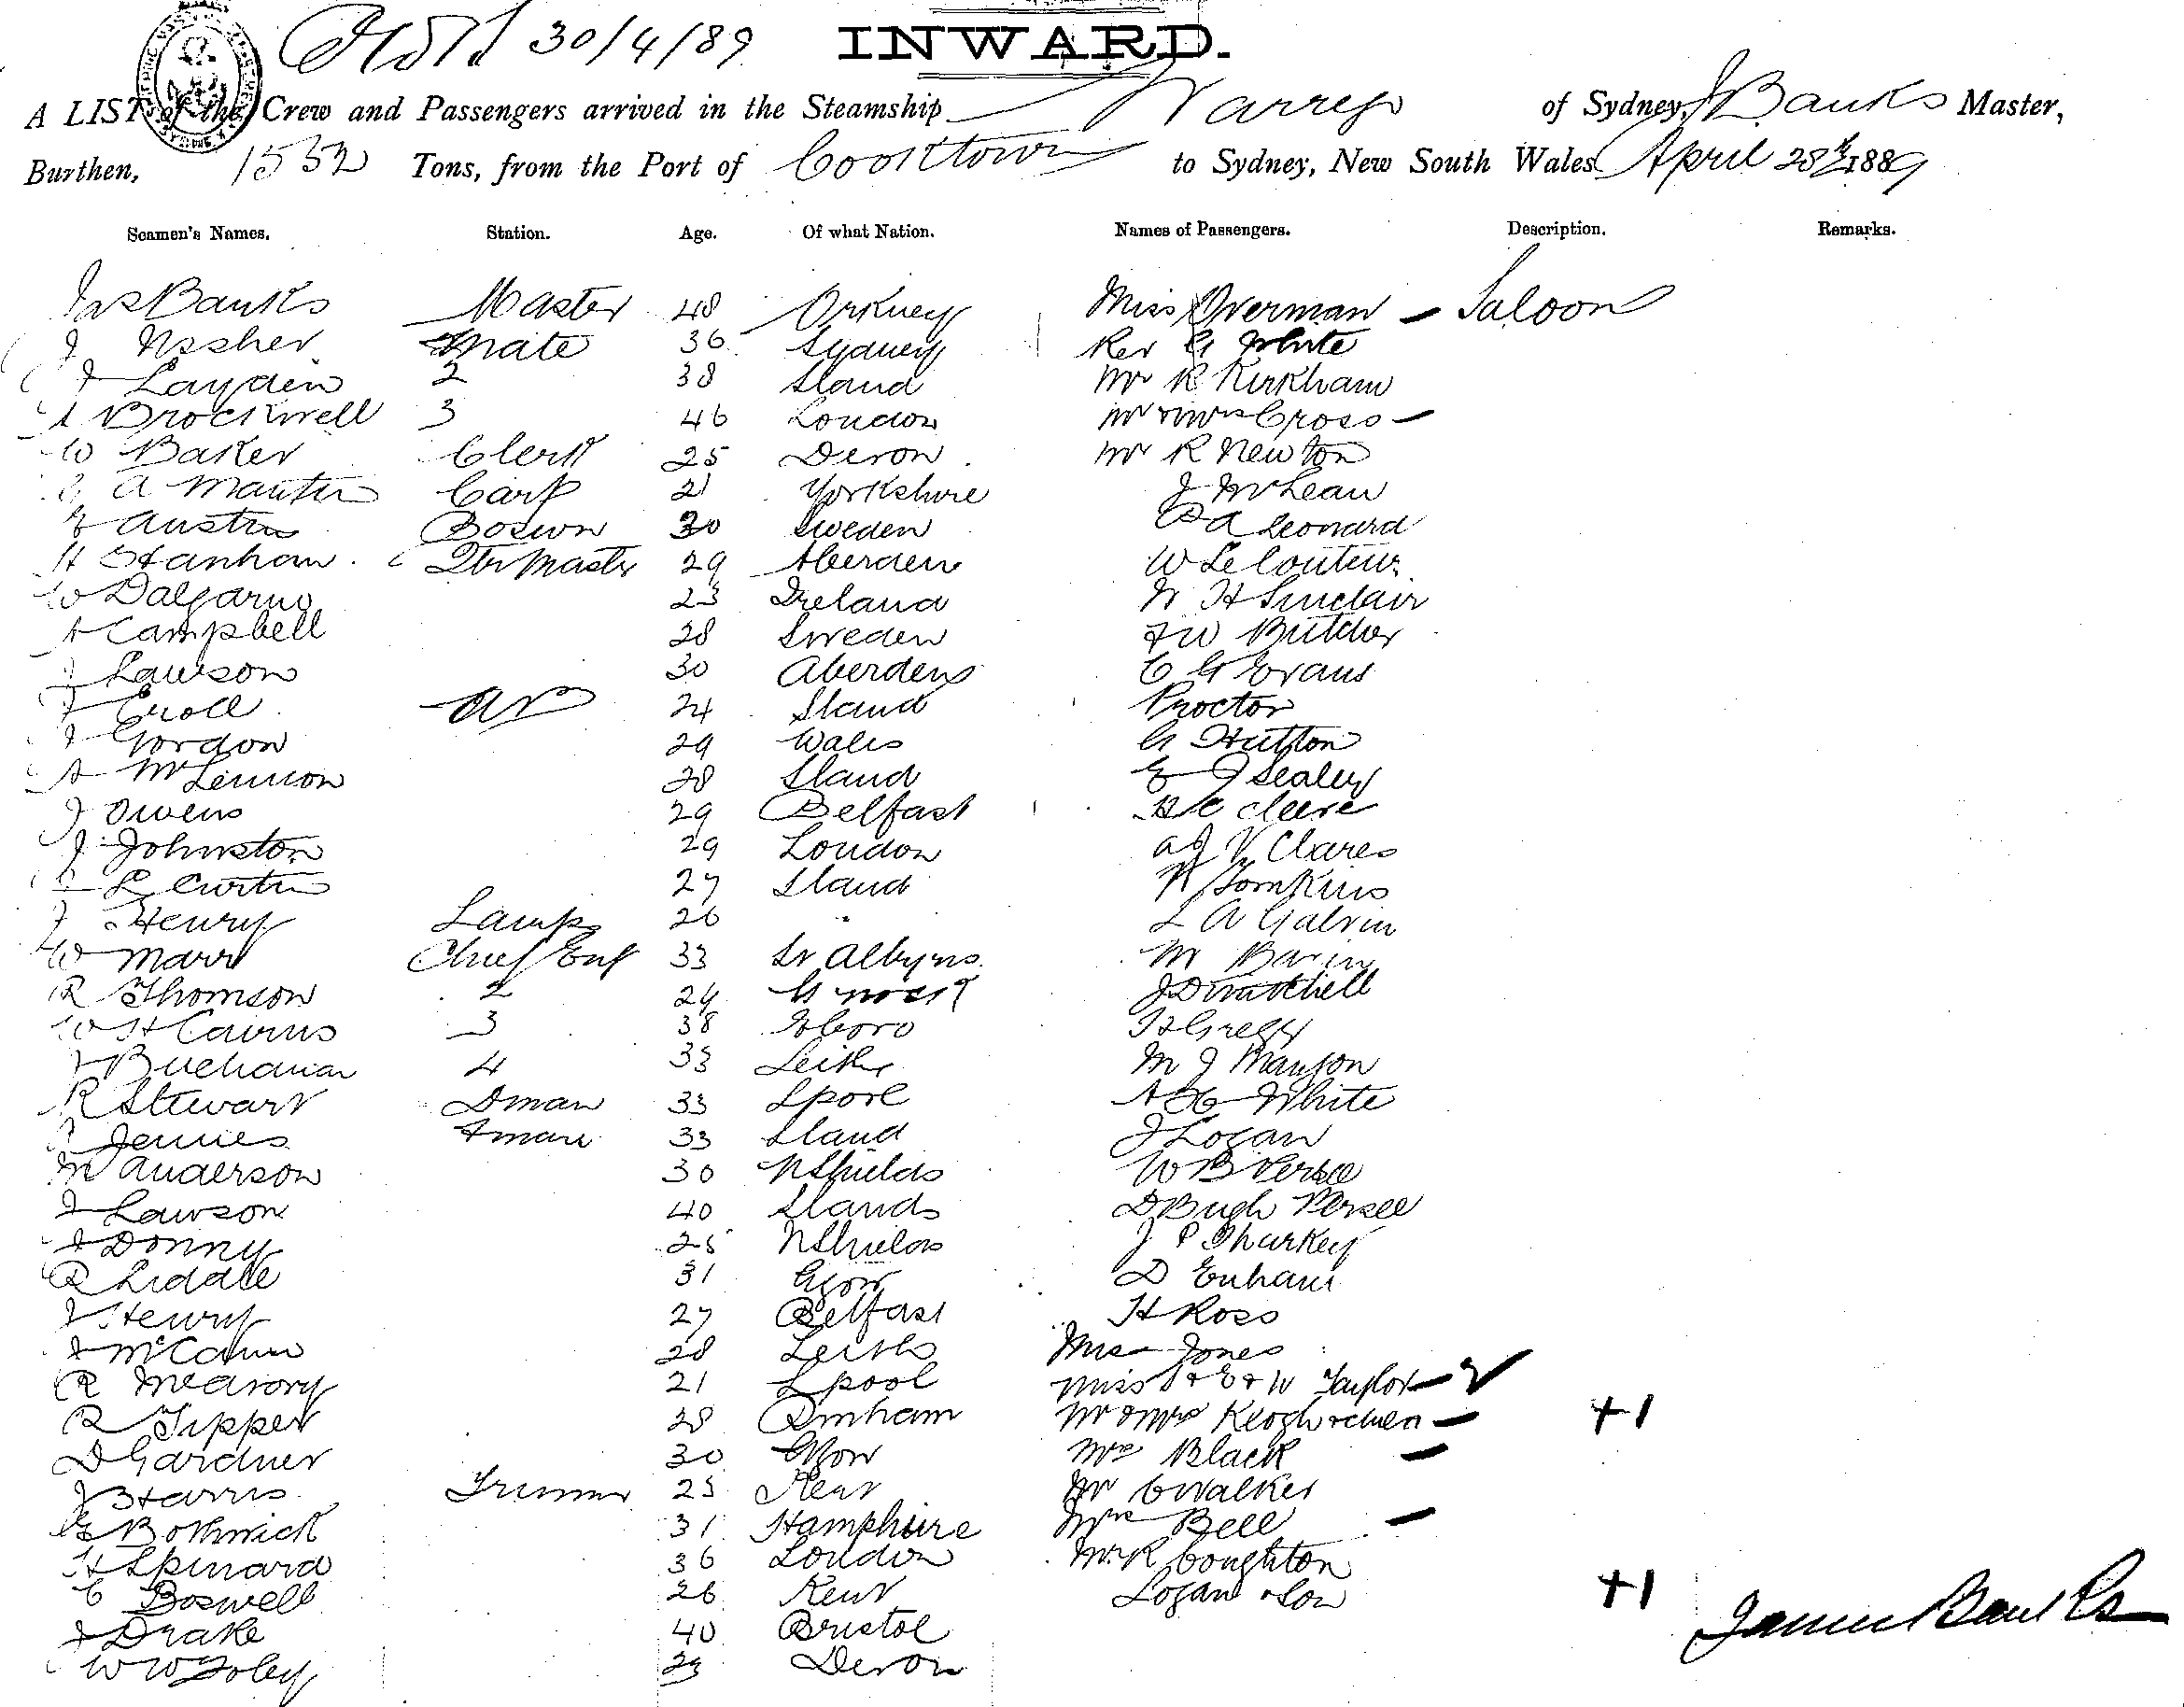 30/4/89 INWARD.
A LIST of the Crew and Passengers arrived in the Steamship Warrego of Sydney, J Banks Master,
Burthen, 1532 Tons, from the Port of Cooktown to Sydney, New South Wales April 28th 1889
Seamen's Names. Station. Age. Of what Nation. Names of Passengers. Description. Remarks.
Jas Banks Master 48 Orkney Miss Overman - Saloon
J Mate 36 Sydney Rev G White
J Layden 2 38 Sland Mr R Kirkham
A Brockwell 3 46 London Mr & Mrs Cross -
W Baker Clerk 25 Devon Mr R Newton
A Martin Carp 21 Yorkshire J McLean
Austin Boswn 30 Sweden A Leonard
H Stanham Qtr Master 29 Aberdeen W Le Couteur
W Dalgarno 23 Ireland H Sinclair
A Campbell 28 Sweden F W Butcher
J Lawson 30 Aberdeen C G Evans
J Croll AB 24 Sland Proctor
J Gordon 29 Wales G Hutton
A McLennon 28 Sland E J Sealey
J Owens 29 Belfast Cleeve
J Johnston 29 London V Clares
L Curtin 27 Sland Tomkins
J Henry Lamps 26 " L A Galvin
W Marr Chief Eng 33 St Albyns M
R Thomson 2 24 J D Mitchell
W H Cairns 3 38 H Gregg
J Buchanan 4 33 Leith M J Manson
R Stewart Dman 33 Lpool A White
Jennes Fman 33 Sland J Logan
M Anderson 30 N Shields W B Persse
J Lawson 40 Slands D Burgh Persse
J Donny 25 N Shields J P Sharkey
R Liddle 31 Ggow D Enham
J Henry 27 Belfast H Ross
J McCann 28 Leith Miss Jones
R 21 Lpool Miss A & E & W Taylor -
R Tipper 28 Bmham Mr & Mrs Keogh & chden - +1
D Gardner 30 Ggow Mrs Black -
J Harris Trimmer 25 Kent Mr C Walker
G Bothwick 31 Hampshire Mrs Bell -
H Spinard 36 London Mr R Coughton
C Boswell 26 Kent Logan & Son +1
J Drake 40 Bristol James Banks
W W Foley 23 Devon